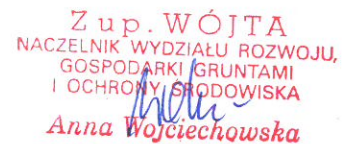 Z up. WÓJTA
NACZELNIK WYDZIAŁU ROZWOJU,
GOSPODARKI GRUNTAMI
I OCHRONY ŚRODOWISKA
Anna Wojciechowska